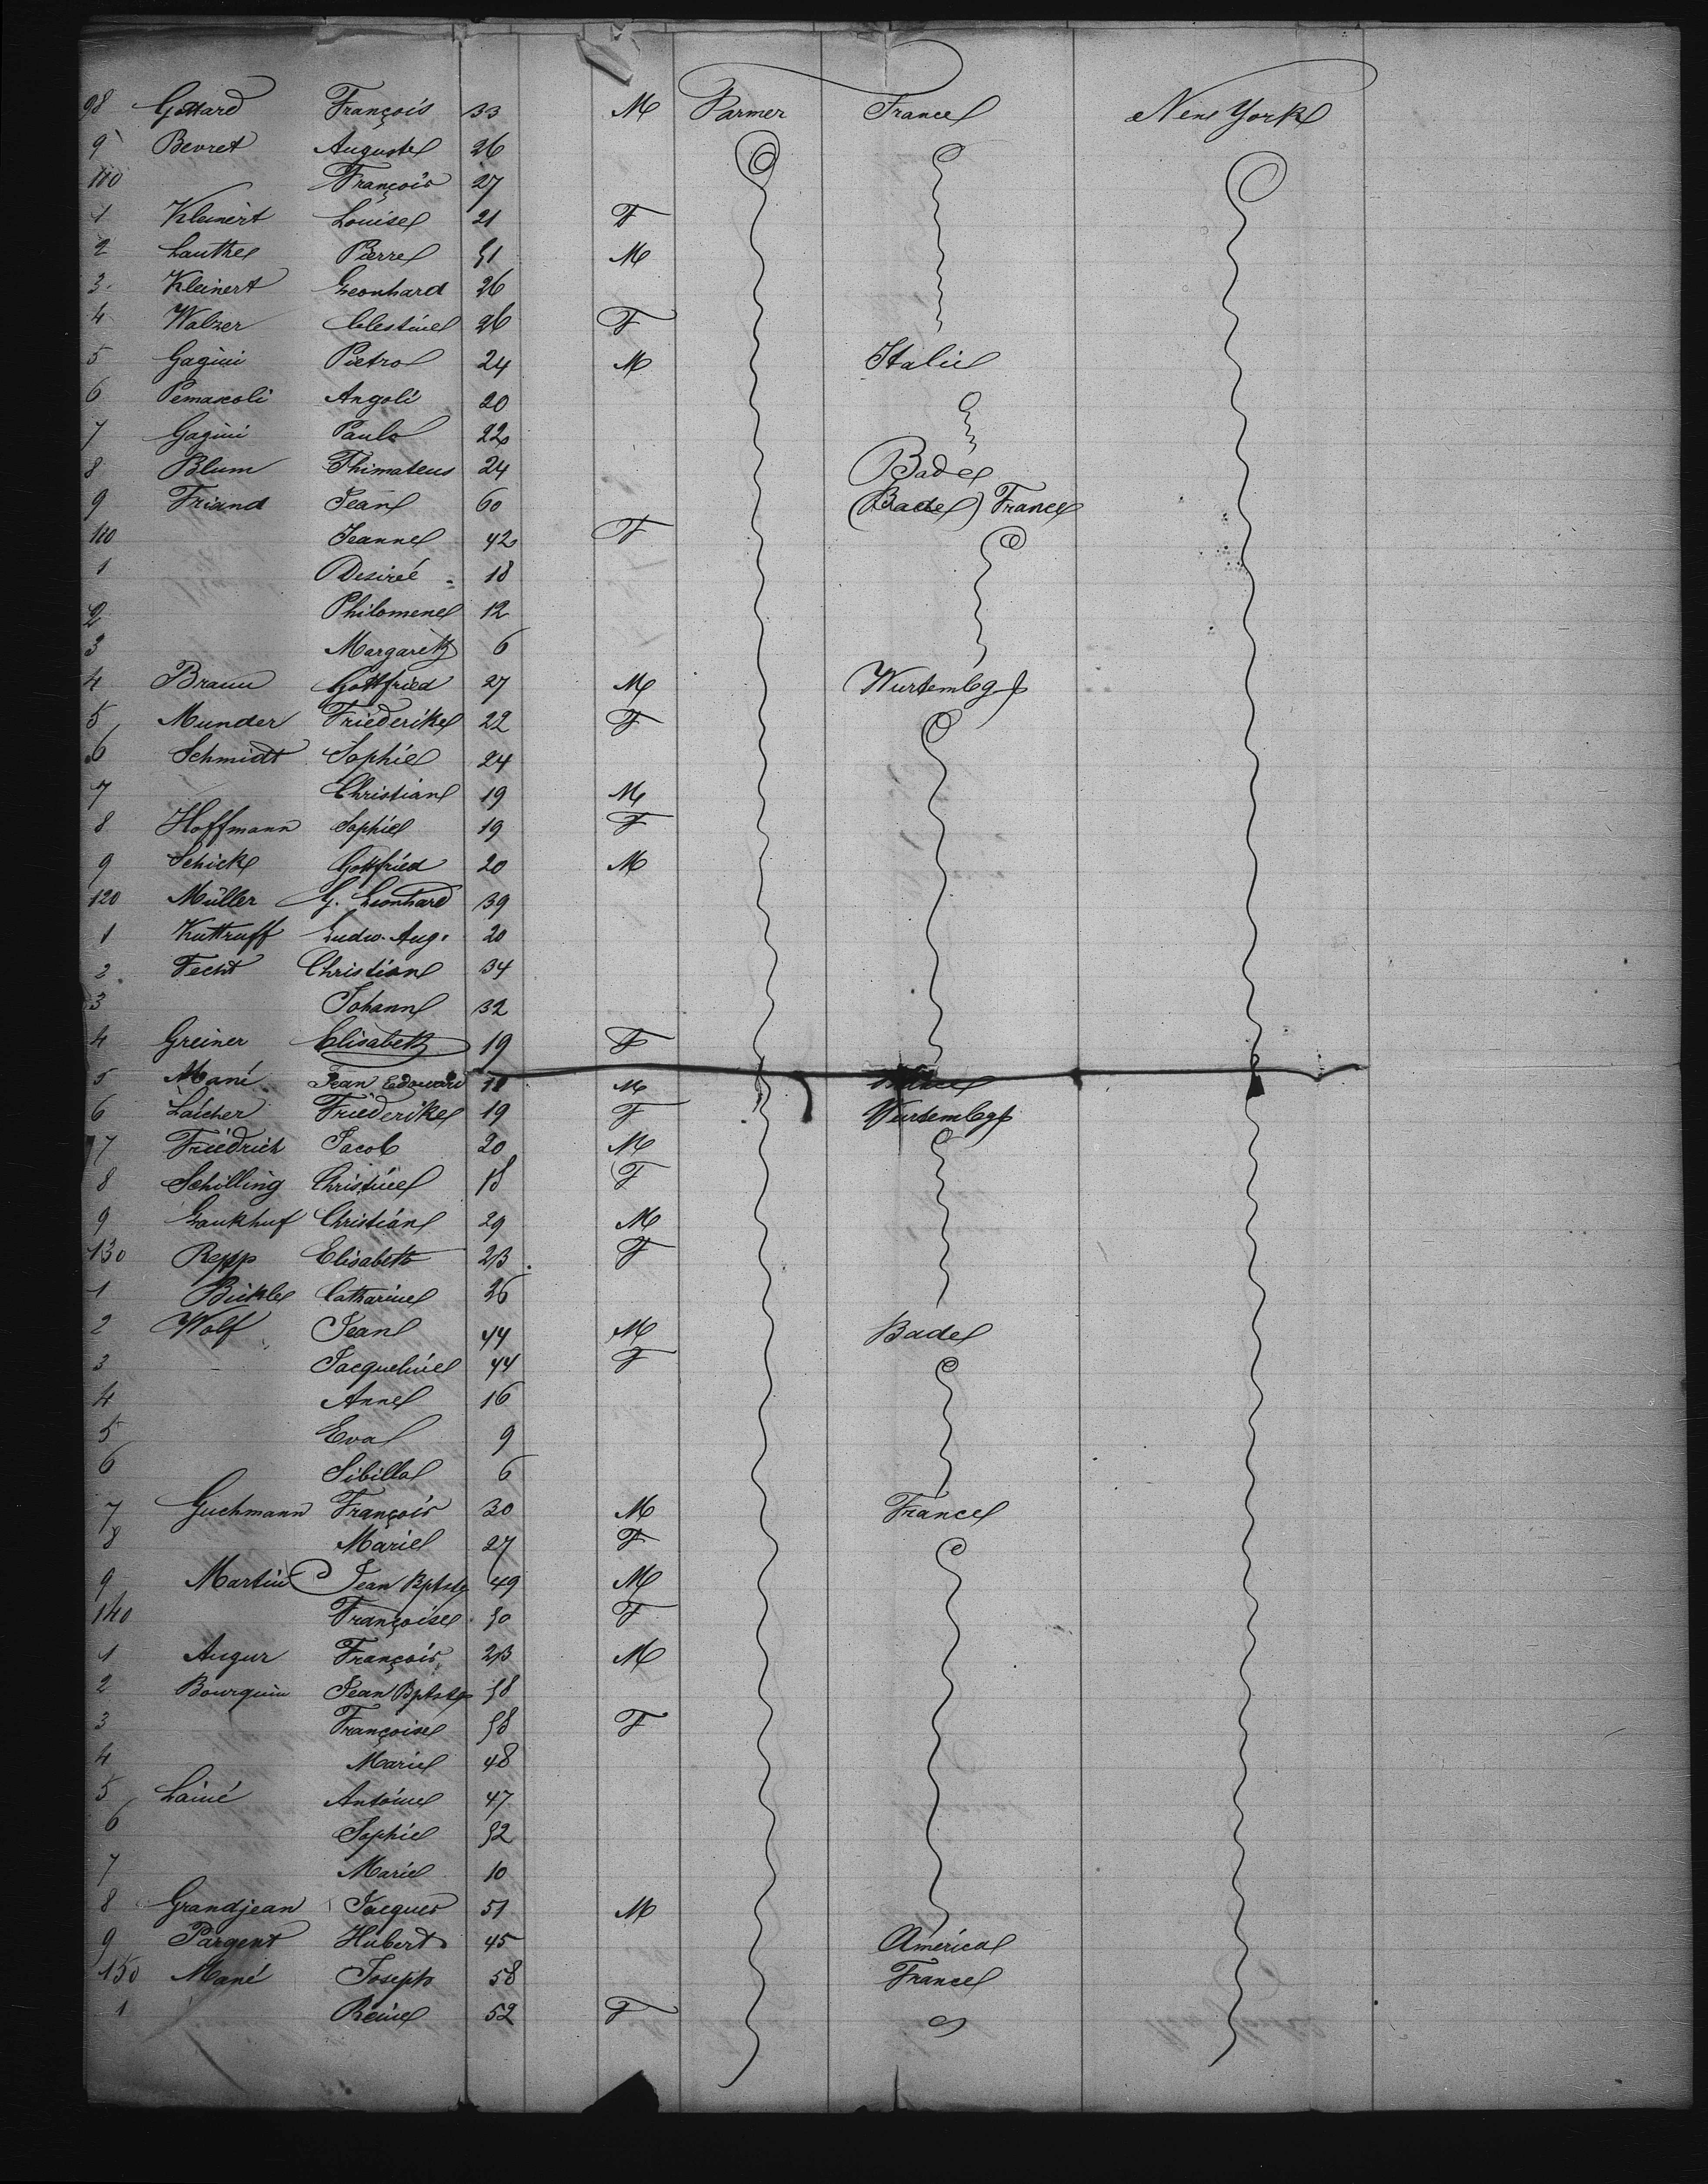 98 Gottard François 33 M Farmer France New York
9 Bevret Auguste 26
100 François 27
1 Kleinert Louise 21 F
2 Lauthe Pierre 51 M
3 Kleinert Leonhard 26
4 Walzer Celestine 26 F
5 Gagini Pietro 24 M Italie
6 Pemascoli Angoli 20
7 Gagini Paulo 22
8 Blum Thimateus 24 Bade
9 Friand Jean 60 (Bade) France
110 Jeanne 42 F
1 Desireé 18
2 Philomene 12
3 Margareth 6
4 Braun Gottfried 27 M Wurtembg
5 Munder Friederike 22 F
6 Schmidt Sophie 24
7 Christian 19 M
8 Hoffmann Sophie 19 F
9 Schick Gottfried 20 M
120 Müller G. Leonhard 39
1 Kuttruff Ludw. Aug. 20
2 Fecht Christian 34
3 Johann 32
4 Greiner Elisabeth 19 F
5 Mané Jean Edouard 18 M
6 Laicher Friederike 19 F Wurtembg
7 Friedrich Jacob 20 M
8 Schilling Christine 18 F
9 Laukhuf Christian 29 M
130 Repp Elisabeth 23 F
1 Bickle Catharine 26
2 Wolf Jean 44 M Bade
3 Jacqueline 44 F
4 Anne 16
5 Eva 9
6 Sibilla 6
7 Guchmann François 30 M France
8 Marie 27 F
9 Martin Jean Bptste 49 M
140 Françoise 50 F
1 Augur François 23 M
2 Bourquin Jean Bptste 58
3 Françoise 58 F
4 Marie 48
5 Lainé Antoine 47
6 Sophie 52
7 Marie 10
8 Grandjean Jacques 51 M
9 Pargent Hubert 45 America
150 Mané Joseph 58 France
1 Reine 52 F